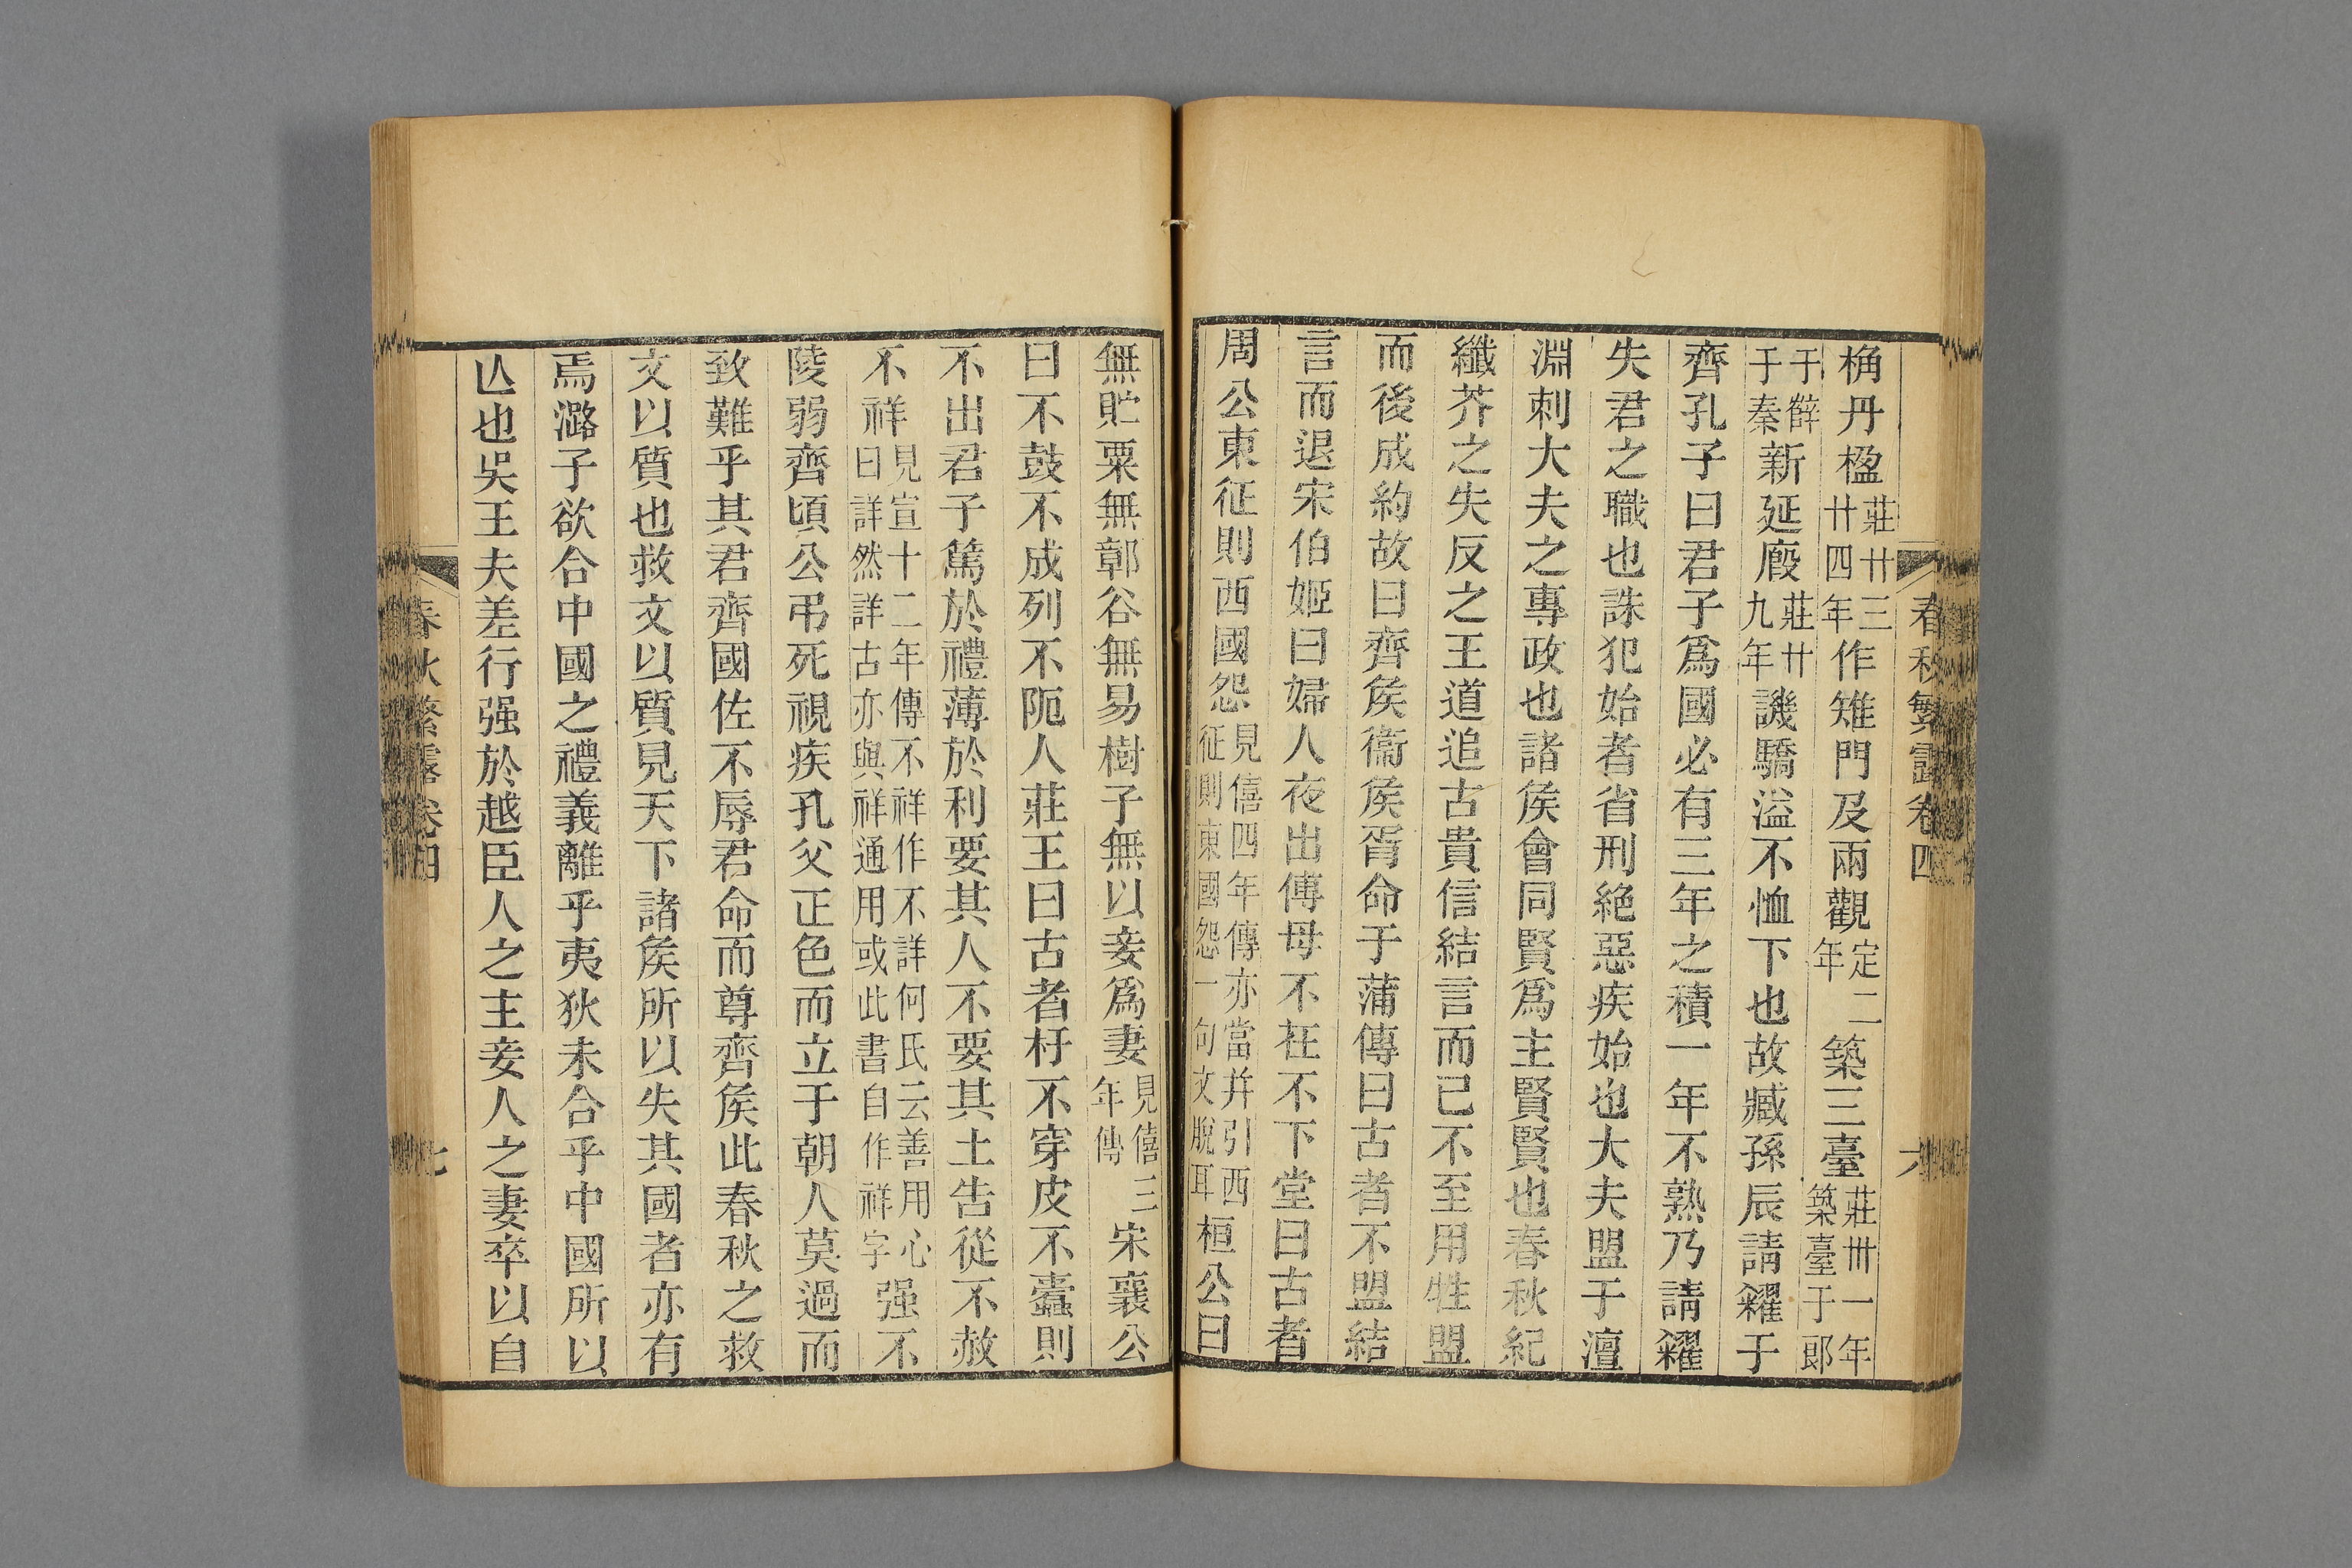 春秋繁露卷四
六
桷丹楹莊廿三廿四年作雉門及兩觀定二年築三臺莊卅一年築臺于郎
于薛于秦新延廄莊廿九年譏驕溢不恤下也故臧孫辰請糴于
齊孔子曰君子爲國必有三年之積一年不熟乃請糴
失君之職也誅犯始者省刑絶惡疾始也大夫盟于澶
淵刺大夫之專政也諸矦會同賢爲主賢賢也春秋紀
纖芥之失反之王道追古貴信結言而已不至用牲盟
而後成約故曰齊矦衞矦胥命于蒲傳曰古者不盟結
言而退宋伯姬曰婦人夜出傅母不在不下堂曰古者
周公東征則西國怨見僖四年傳亦當幷引西征則東國怨一句文脫耳桓公曰
無貯粟無鄣谷無易樹子無以妾爲妻見僖三年傳宋襄公
曰不鼓不成列不阨人莊王曰古者杅不穿皮不蠹則
不出君子篤於禮薄於利要其人不要其土告從不赦
不祥見宣十二年傳不祥作不詳何氏云善用心曰詳然詳古亦與祥通用或此書自作祥字强不
陵弱齊頃公弔死視疾孔父正色而立于朝人莫過而
致難乎其君齊國佐不辱君命而尊齊矦此春秋之救
文以質也救文以質見天下諸矦所以失其國者亦有
焉潞子欲合中國之禮義離乎夷狄未合乎中國所以
亾也吳王夫差行强於越臣人之主妾人之妻卒以自
春秋繁露卷四
七